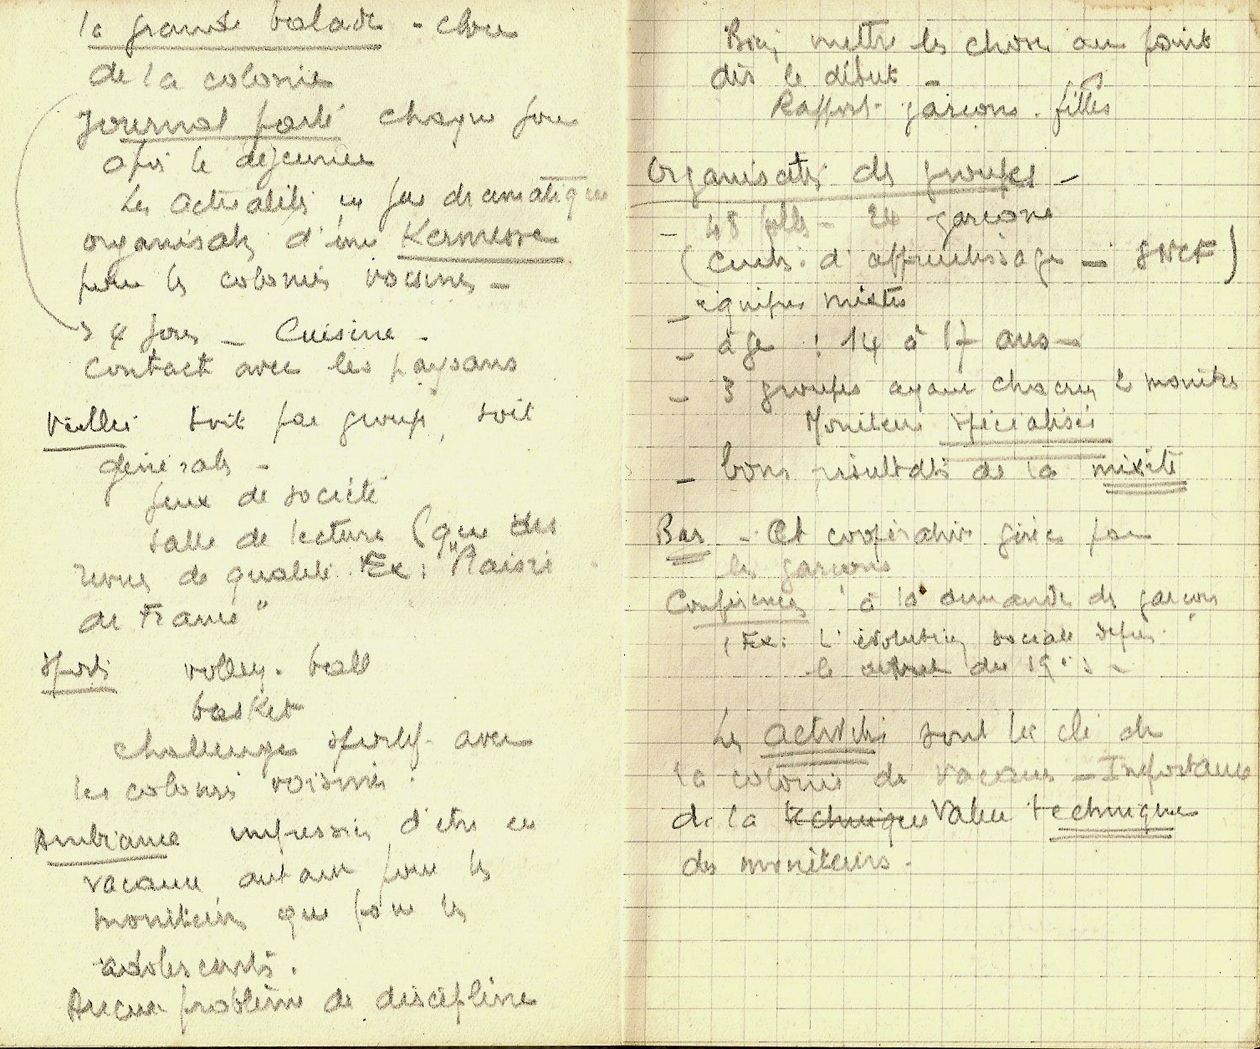 la grande balade - clou
de la colonie
Journal parlé chaque jour
après le déjeuner
Les Actualités en jeu dramatique
organisat. d'une Kermesse
pour les colonies voisines -
3 4 jours - Cuisine -
Contact avec les paysans
Veillées soit par groupe, soit
générale -
Jeux de société
Salle de lecture (que des
revues de qualité. Ex: "Plaisir
de France"
Sports volley-ball
basket
challenge sportif avec
les colonies voisines.
Ambiance impression d'être en
vacances autant pour les
moniteurs que pour les
adolescents.
Aucun problème de discipline
Bien mettre les choses au point
dès le début -
Rapport garçons - filles
Organisation des groupes -
- 48 filles - 24 garçons
( d'apprentissage - SNCF)
- équipes mixtes
- âge : 14 à 17 ans -
- 3 groupes ayant chacun 2 monites
Moniteur spécialisé
- bons résultats de la mixité
Bar - Et coopérative gérée par
les garçons
Conférences à la demande des garçons
(Ex: L'évolution sociale depuis
le début du 19e s -
Les activités sont la clé de
la colonie de vacances - Importance
de la techniques Valeur technique
des moniteurs.